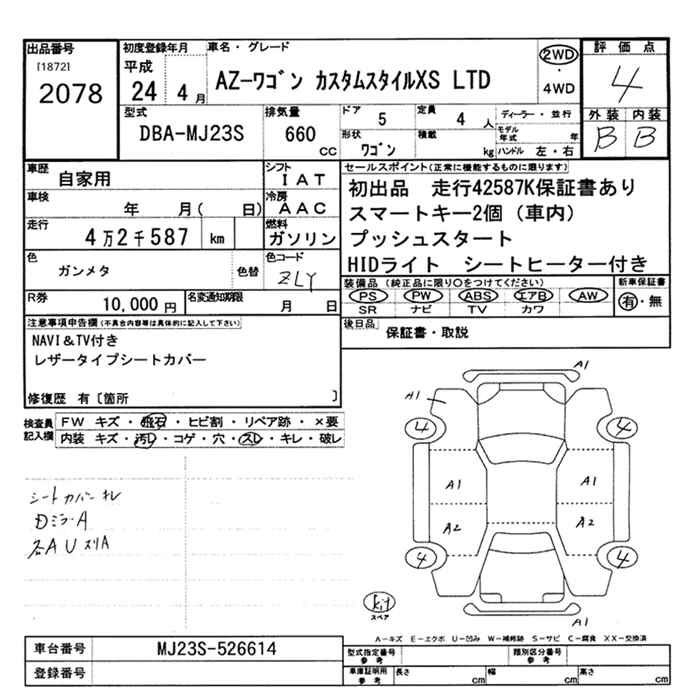 出品番号
[1872]
2078
初度登録年月
平成
24 4月
車名・グレード
AZーワゴン カスタムスタイルXS LTD
2WD
4WD
評価点
4
型式
DBA-MJ23S
排気量
660
CC
ドア
5
定員
4 人
ディーラー・並行
形状
ワゴン
積載
kg
モデル年式 年
ハンドル 左・右
外装 内装
B B
車歴
自家用
シフト
IAT
車検
年 月( 日)
冷房
AAC
走行
4万2千587 km
燃料
ガソリン
色
ガンメタ
色替
色コード
ZLY
R券
10,000 円
名変通知期限
月 日
セールスポイント(正常に機能するものに限ります)
初出品 走行42587K保証書あり
スマートキー2個(車内)
プッシュスタート
HIDライト シートヒーター付き
装備品(純正品に限り○をつけてください)
PS PW ABS エアB AW
SR ナビ TV カワ
新車保証書
有・無
後日品
保証書・取説
注意事項申告欄(不具合内容等は具体的に記入して下さい)
NAVI&TV付き
レザータイプシートカバー
修復歴 有〔箇所 〕
検査員記入欄
FW キズ・飛石・ヒビ割・リペア跡・×要
内装 キズ・汚レ・コゲ・穴・スレ・キレ・破レ
シートカバーキレ
DミラーA
A1
A1
4
4
A1
A1
A2
A2
4
4
スペア
A1
A−キズ E−エクボ U−凹み W−補修跡 S−サビ C−腐食 XX−交換済
車台番号
MJ23S-526614
登録番号
型式指定番号
参考
類別区分番号
参考
車庫証明用
参考
長さ cm
幅 cm
高さ cm